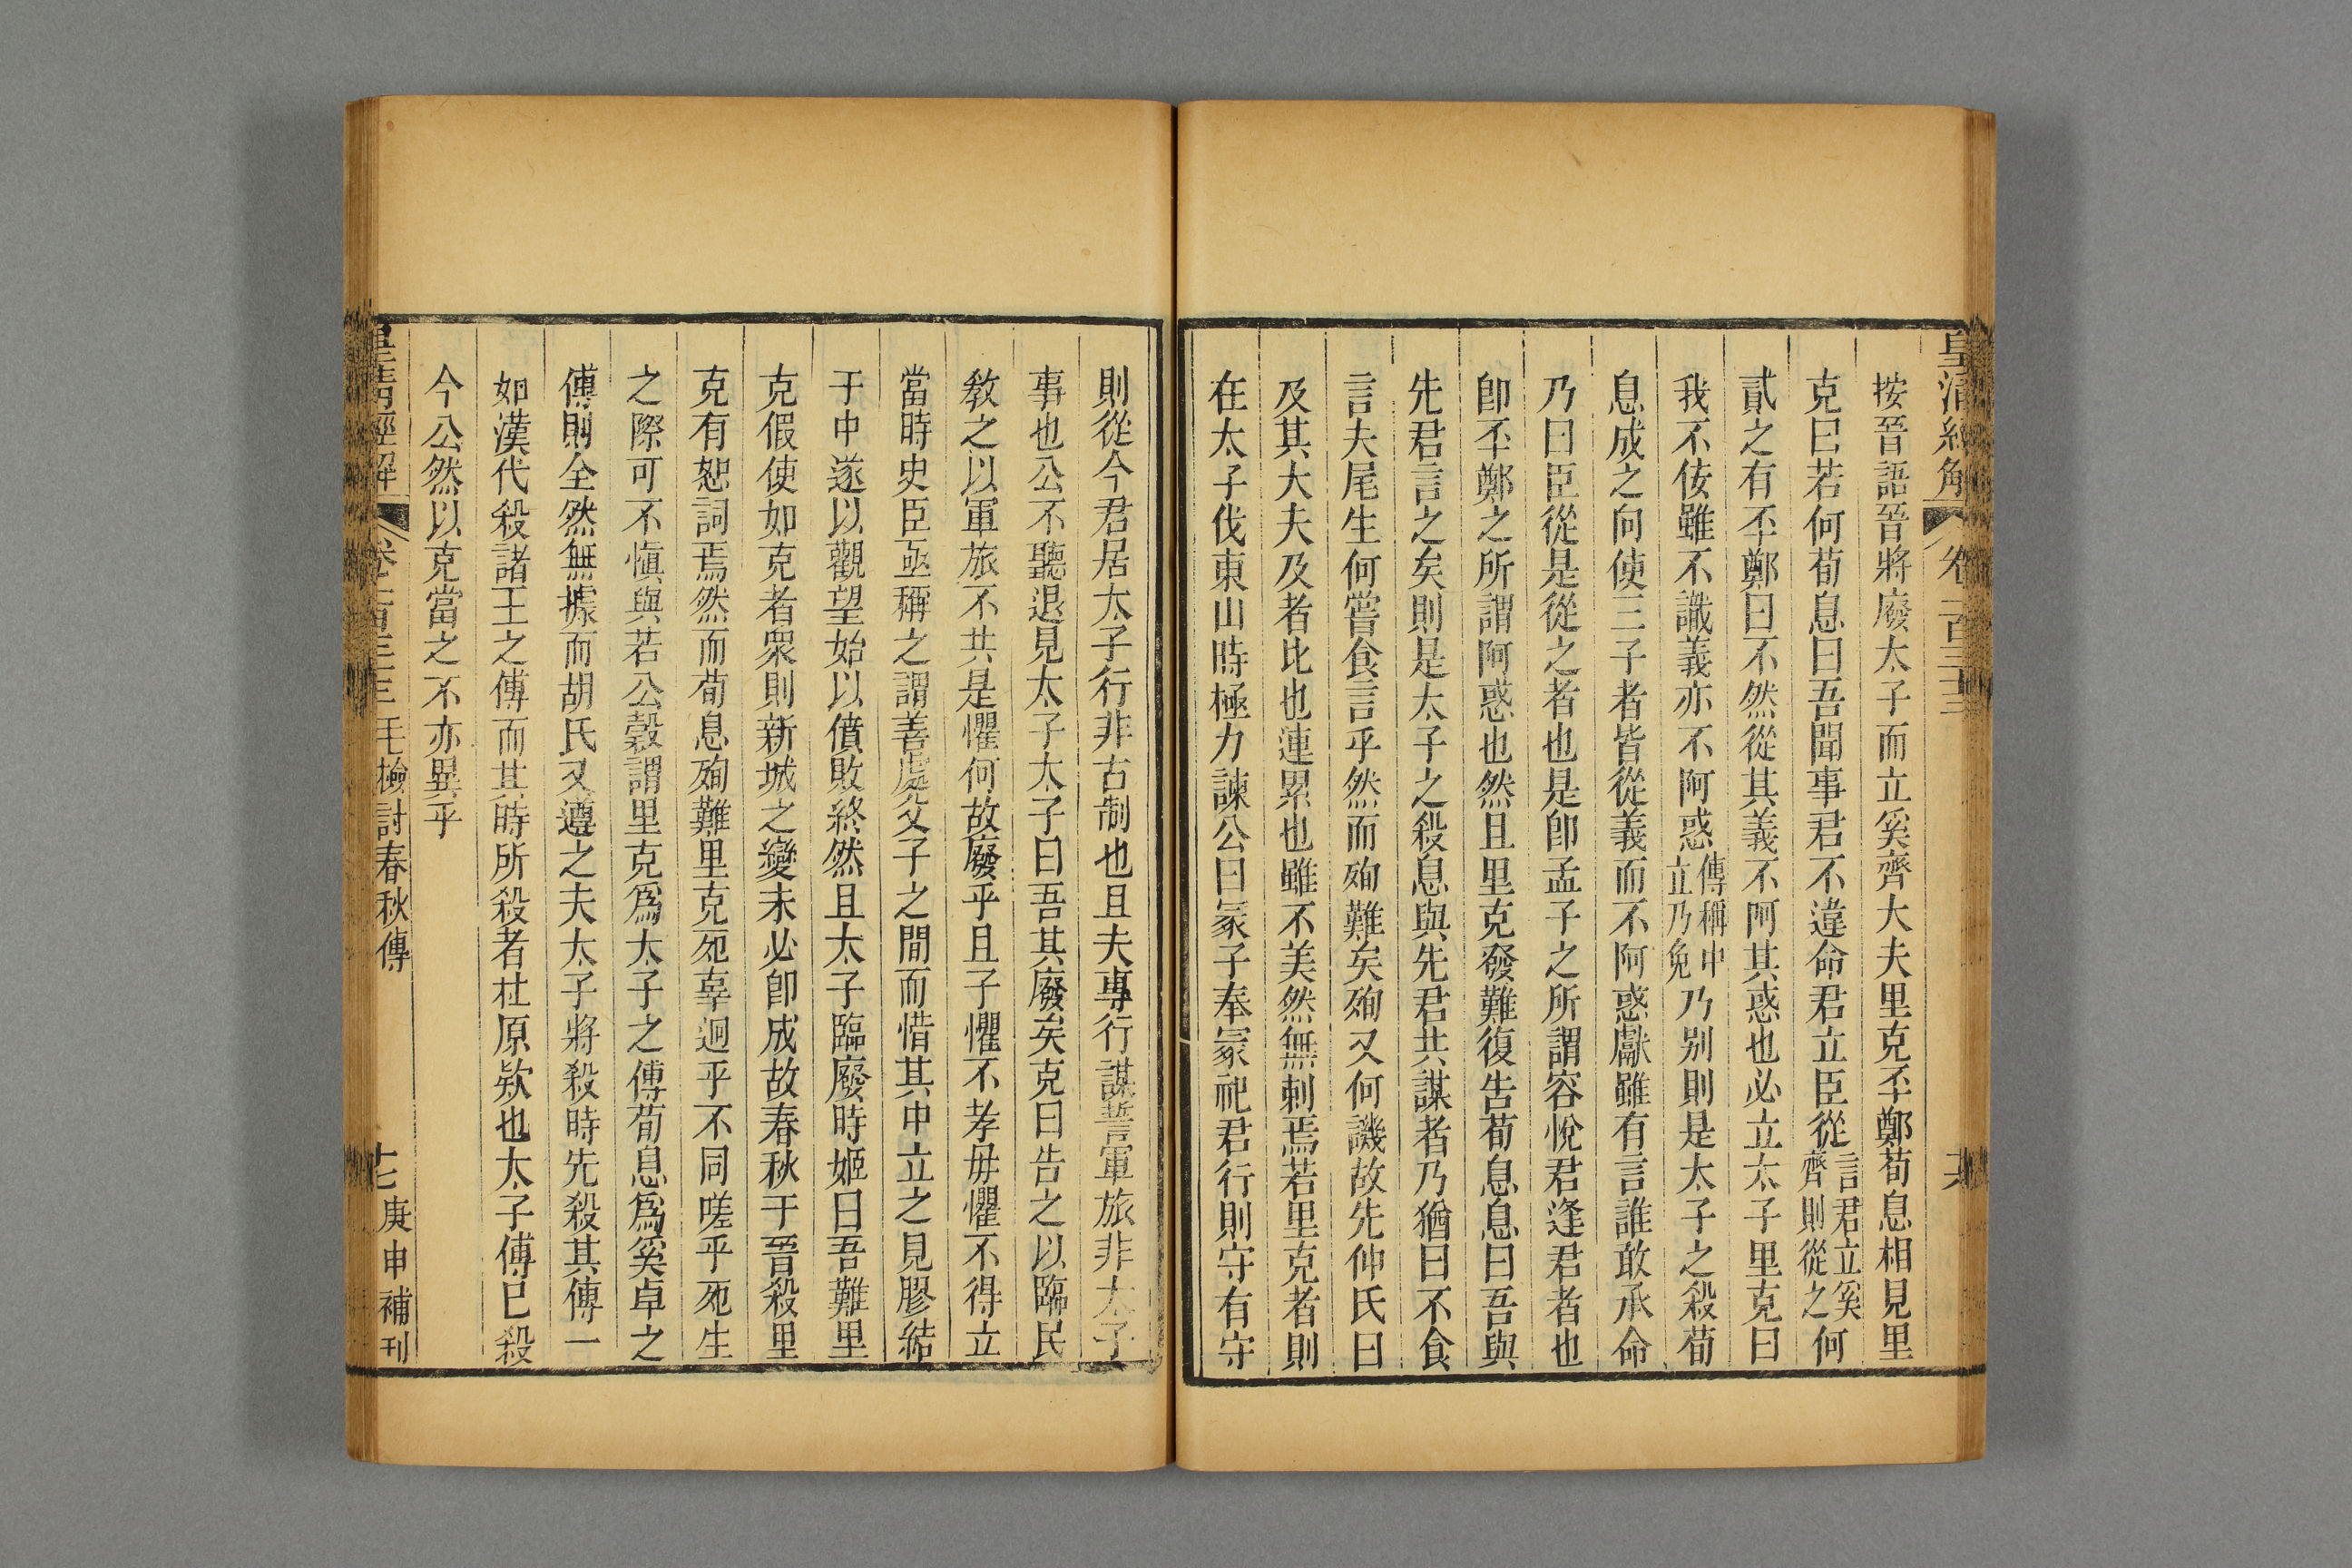 皇清經解
卷一百三十三
按晉語晉將廢太子而立奚齊大夫里克丕鄭荀息相見里
克曰若何荀息曰吾聞事君不違命君立臣從言君立奚齊則從之何
貳之有丕鄭曰不然從其義不阿其惑也必立太子里克曰
我不佞雖不識義亦不阿惑傳稱中立乃免乃別則是太子之殺荀
息成之向使三子者皆從義而不阿惑獻雖有言誰敢承命
乃曰臣從是從之者也是卽孟子之所謂容悅君逢君者也
卽丕鄭之所謂阿惑也然且里克發難復告荀息息曰吾與
先君言之矣則是太子之殺息與先君共謀者乃猶曰不食
言夫尾生何嘗食言乎然而殉難矣殉又何譏故先仲氏曰
及其大夫及者比也連累也雖不美然無刺焉若里克者則
在太子伐東山時極力諫公曰冢子奉冢祀君行則守有守
則從今君居太子行非古制也且夫專行謀誓軍旅非太子
事也公不聽退見太子太子曰吾其廢矣克曰告之以臨民
敎之以軍旅不共是懼何故廢乎且子懼不孝毋懼不得立
當時史臣亟稱之謂善處父子之間而惜其中立之見膠結
于中遂以觀望始以僨敗終然且太子臨廢時姬曰吾難里
克假使如克者衆則新城之變未必卽成故春秋于晉殺里
克有恕詞焉然而荀息殉難里克死辜迥乎不同嗟乎死生
之際可不愼與若公穀謂里克爲太子之傅荀息爲奚卓之
傅則全然無據而胡氏又遵之夫太子將殺時先殺其傅一
如漢代殺諸王之傅而其時所殺者杜原欵也太子傅已殺
今公然以克當之不亦異乎
皇清經解
卷一百三十三
毛檢討春秋傳
庚申補刊